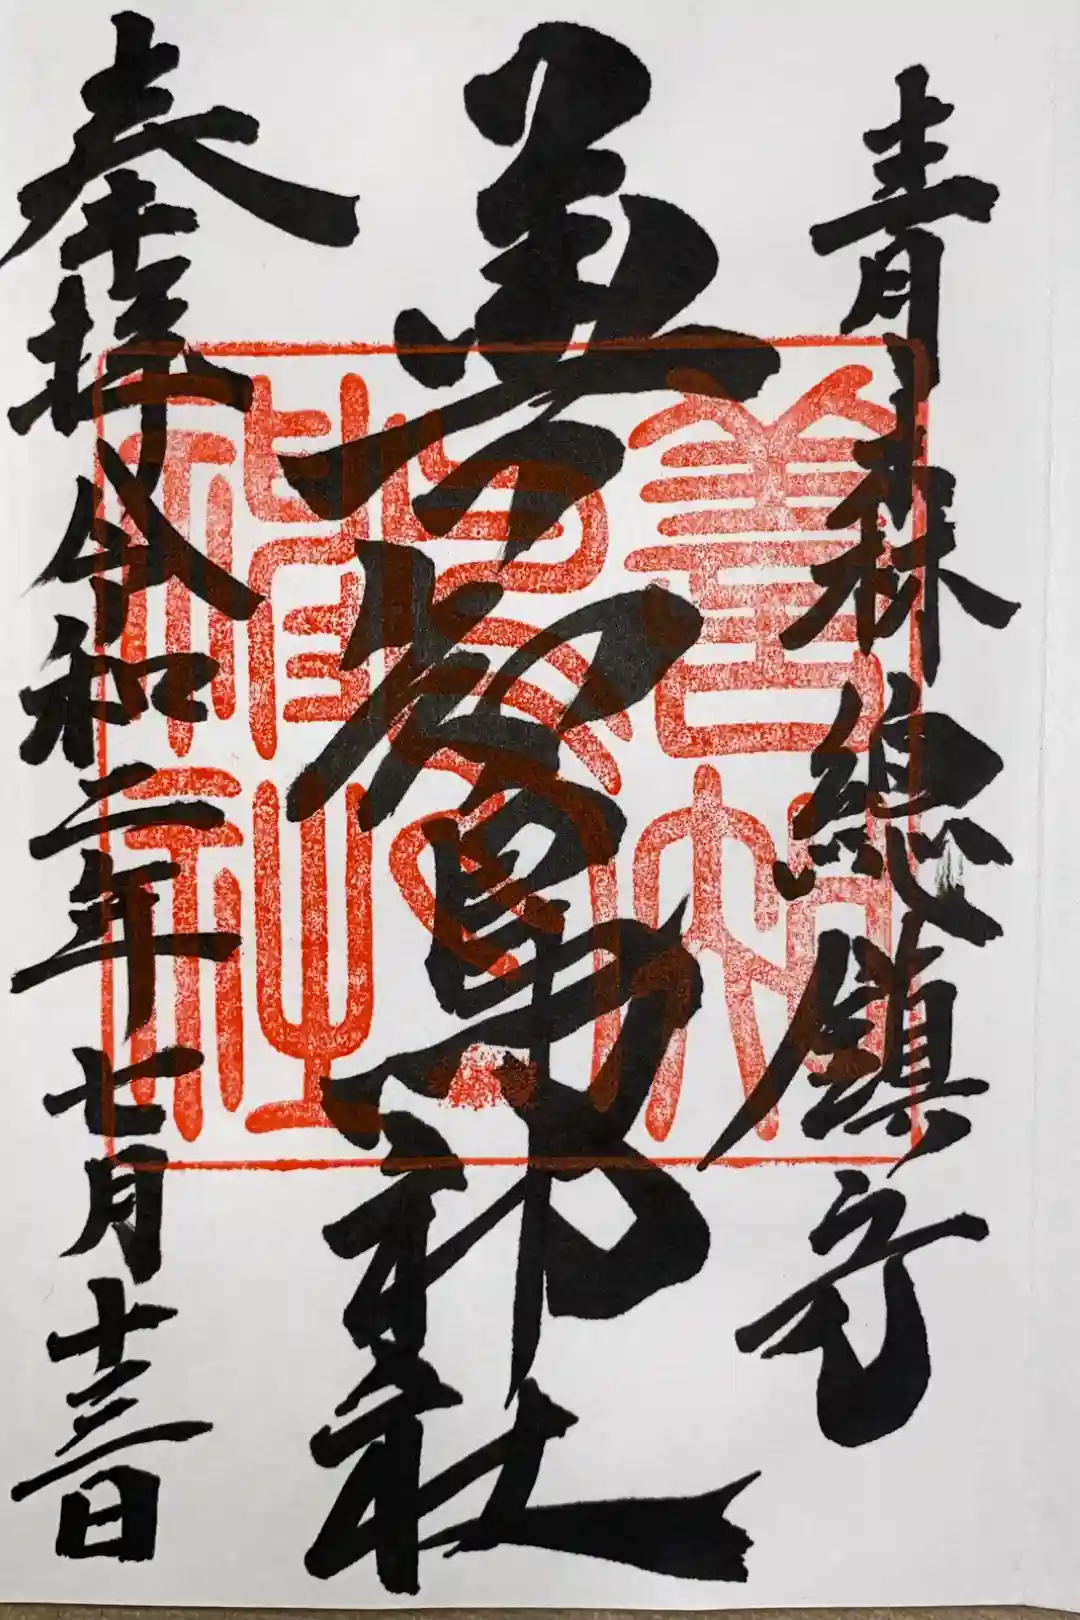 青森総鎮守
善知鳥神社
奉拝 令和二年七月十三日
善知
鳥宮
神社